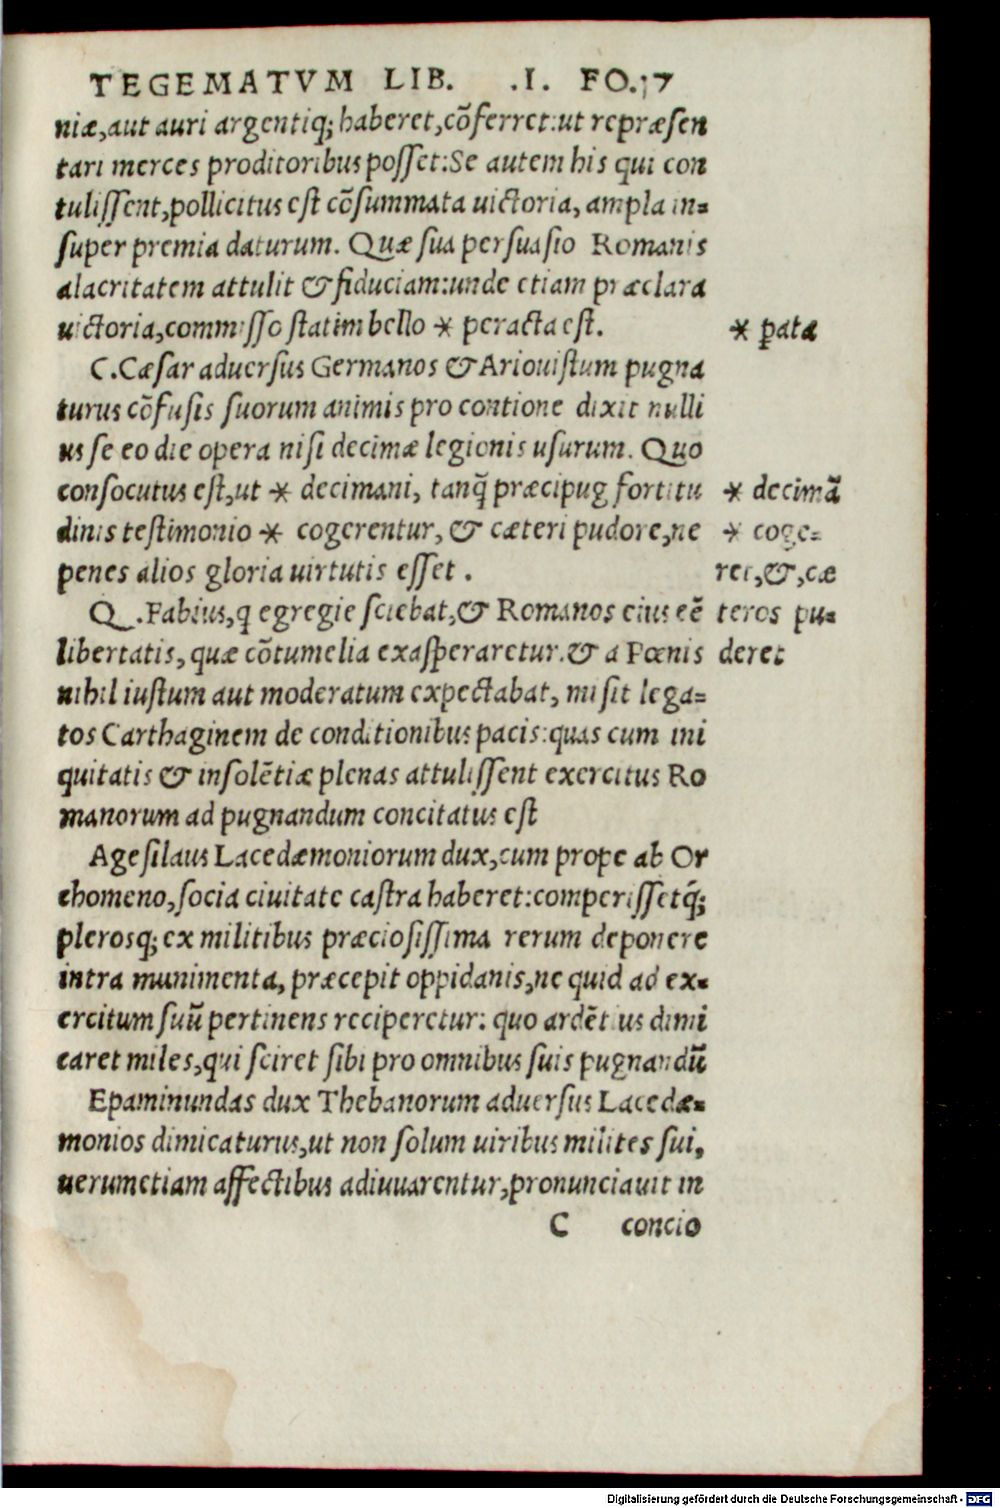 TEGEMATVM LIB. .I. FO.17
niæ,aut auri argentiq; haberet,cõferret:ut repræsen
tari merces proditoribus posset:Se autem his qui con
tulissent,pollicitus est cõsummata uictoria, ampla in-
super premia daturum. Quæ sua persuasio Romanis
alacritatem attulit & fiduciam:unde etiam præclara
uictoria,commisso statim bello * peracta est.
* ꝑata
C.Cæsar aduersus Germanos & Ariouistum pugna
turus cõfusis suorum animis pro contione dixit nulli
us se eo die opera nisi decimæ legionis usurum. Quo
consocutus est,ut * decimani, tanq̃ præcipug fortitu
* decimã
dinis testimonio * cogerentur, & cæteri pudore,ne
* coge-
penes alios gloria uirtutis esset .
ret,&,cæ
Q.Fabius,q egregie sciebat,& Romanos eius eẽ
teros pu-
libertatis, quæ cõtumelia exasperaretur.& a Pœnis
deret
nihil iustum aut moderatum expectabat, misit lega-
tos Carthaginem de conditionibus pacis:quas cum ini
quitatis & insolẽtiæ plenas attulissent exercitus Ro
manorum ad pugnandum concitatus est
Agesilaus Lacedæmoniorum dux,cum prope ab Or
chomeno,socia ciuitate castra haberet:comperissetq̃;
plerosq; ex militibus præciosissima rerum deponere
intra munimenta, præcepit oppidanis,ne quid ad ex-
ercitum suũ pertinens reciperetur: quo ardẽtius dimi
caret miles,qui sciret sibi pro omnibus suis pugnandũ
Epaminundas dux Thebanorum aduersus Lacedæ-
monios dimicaturus,ut non solum uiribus milites sui,
uerumetiam affectibus adiuuarentur,pronunciauit in
C concio
Digitalisierung gefördert durch die Deutsche Forschungsgemeinschaft - DFG